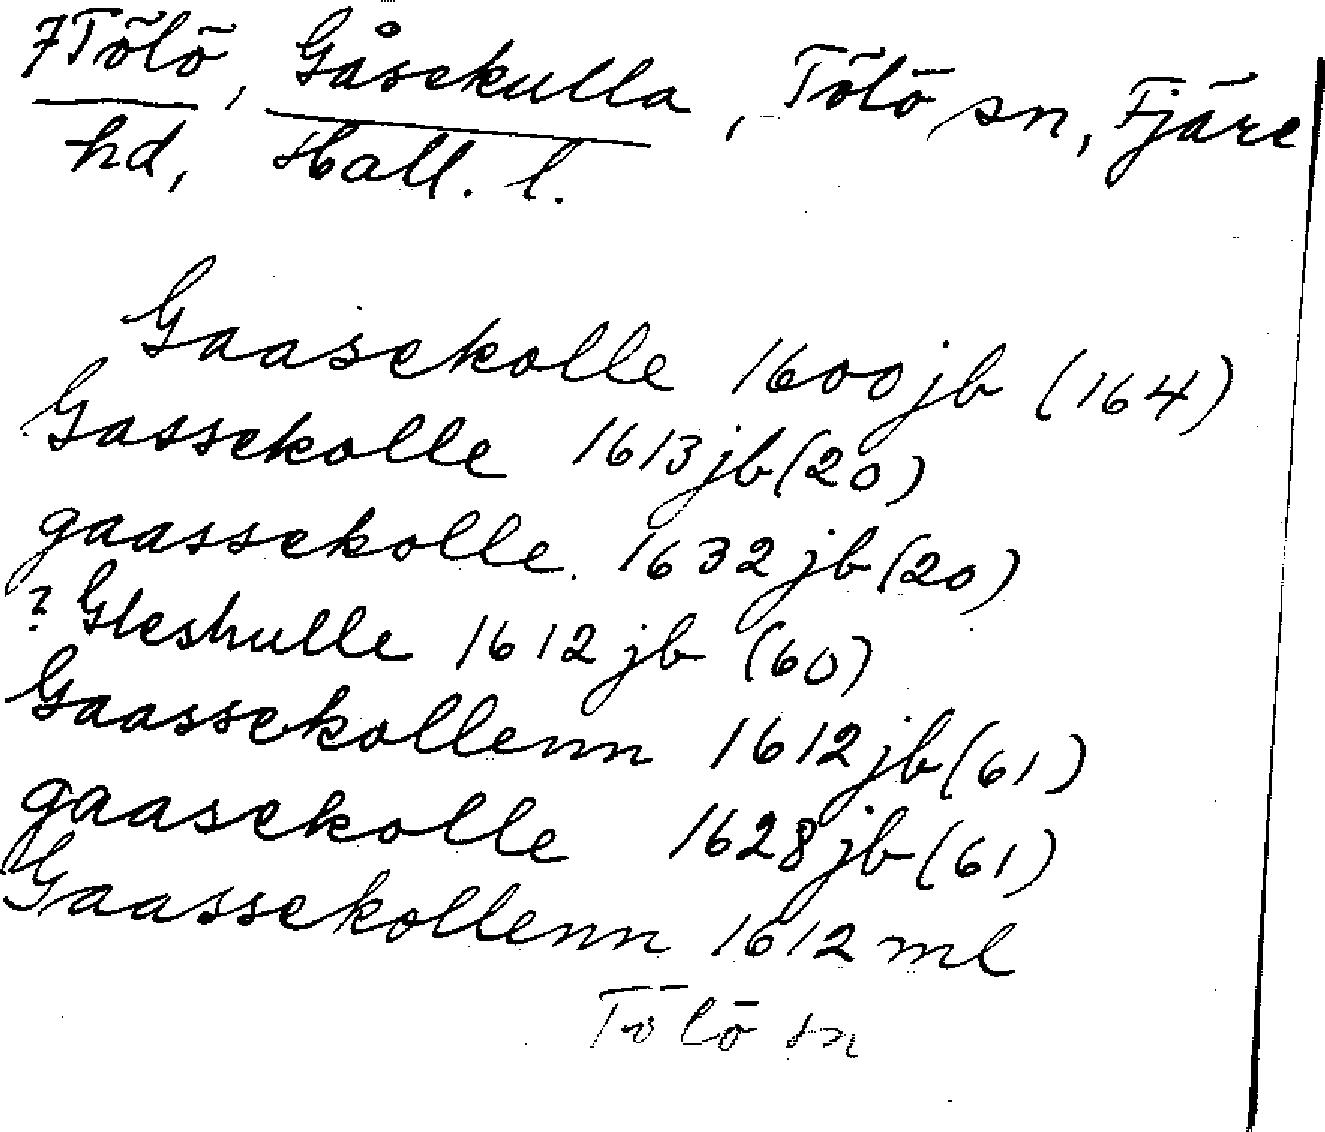 7 Tölö, Gåsekulla, Tölö sn, Fjäre
hd, Hall. l.
Gaasekolle 1600 jb (164)
Gassekolle 1613 jb (20)
gaassekolle 1632 jb (20)
? Gleshulle 1612 jb (60)
Gaassekollenn 1612 jb (61)
gaasekolle 1628 jb (61)
Gaassekollenn 1612 ml
Tölö sn